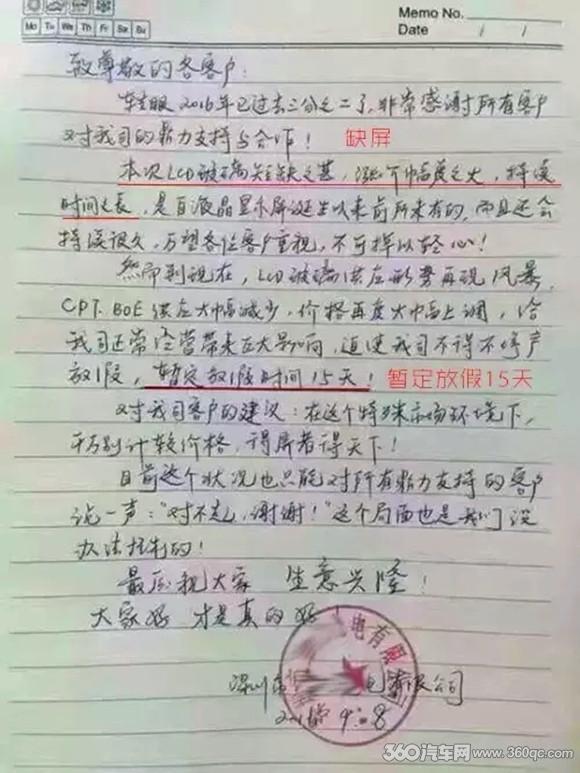 Memo No.
Mo Tu We Th Fr Sa Su
Date / /
致尊敬的各客户:
转眼2016年已过去三分之二了,非常感谢所有客户
对我司的鼎力支持与合作!
缺屏
本次LCD玻璃短缺之甚,涨价幅度之大,持续
时间之长,是自液晶显示屏诞生以来前所未有的,而且还会
持续很久,万望各位客户重视,不可掉以轻心!
然而到现在,LCD玻璃供应形势再现风暴,
CPT.BOE供应大幅减少,价格再度大幅上调,给
我司正常经营带来巨大影响,迫使我司不得不停产
放假,暂定放假时间15天!
暂定放假15天
对我司客户的建议:在这个特殊市场环境下,
千万别计较价格,得屏者得天下!
目前这个状况也只能对所有鼎力支持的客户
说一声:"对不起,谢谢!"这个局面也是我们没
办法控制的!
最后祝大家 生意兴隆!
大家好 才是真的好!
电有限
深圳市 电有限公司
9 8
360汽车网www.360qc.com